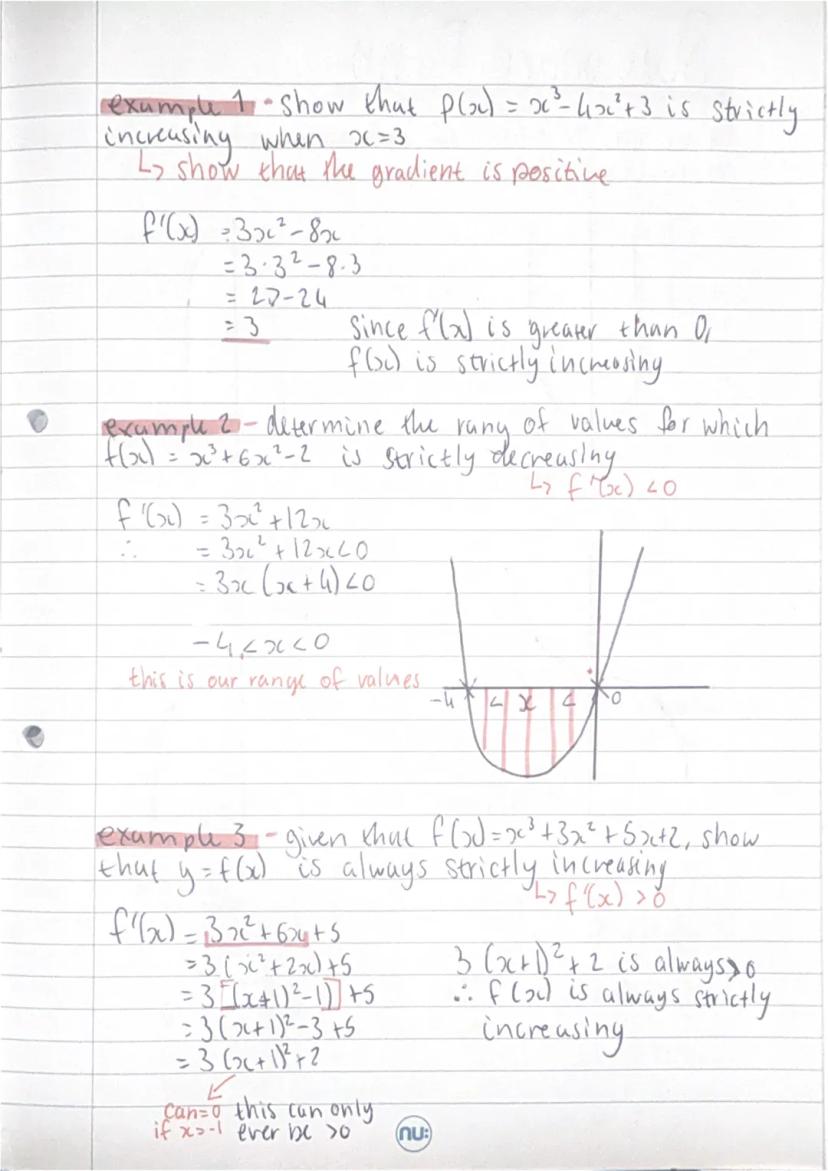 example 1 - show that f(x) = x³-4x²+3 is strictly
increasing when x=3
↳ show that the gradient is positive
f'(x) = 3x²-8x
= 3·3²-8·3
= 27-24
= 3
Since f'(x) is greater than 0,
f(x) is strictly increasing
example 2 - determine the rang of values for which
f(x) = x³+6x²-2 is strictly decreasing
↳ f'(x) <0
f'(x) = 3x²+12x
∴ = 3x²+12x<0
= 3x(x+4)<0
-4<x<0
this is our range of values
-4 < x < 0
example 3 - given that f(x)=x³+3x²+5x+2, show
that y=f(x) is always strictly increasing
↳ f'(x) >0
f'(x) = 3x²+6x+5
= 3(x²+2x)+5
= 3[(x+1)²-1)]+5
= 3(x+1)²-3+5
= 3(x+1)²+2
3(x+1)²+2 is always >0
∴ f(x) is always strictly
increasing
can=0 this can only
if x=-1 ever be >0
nu: